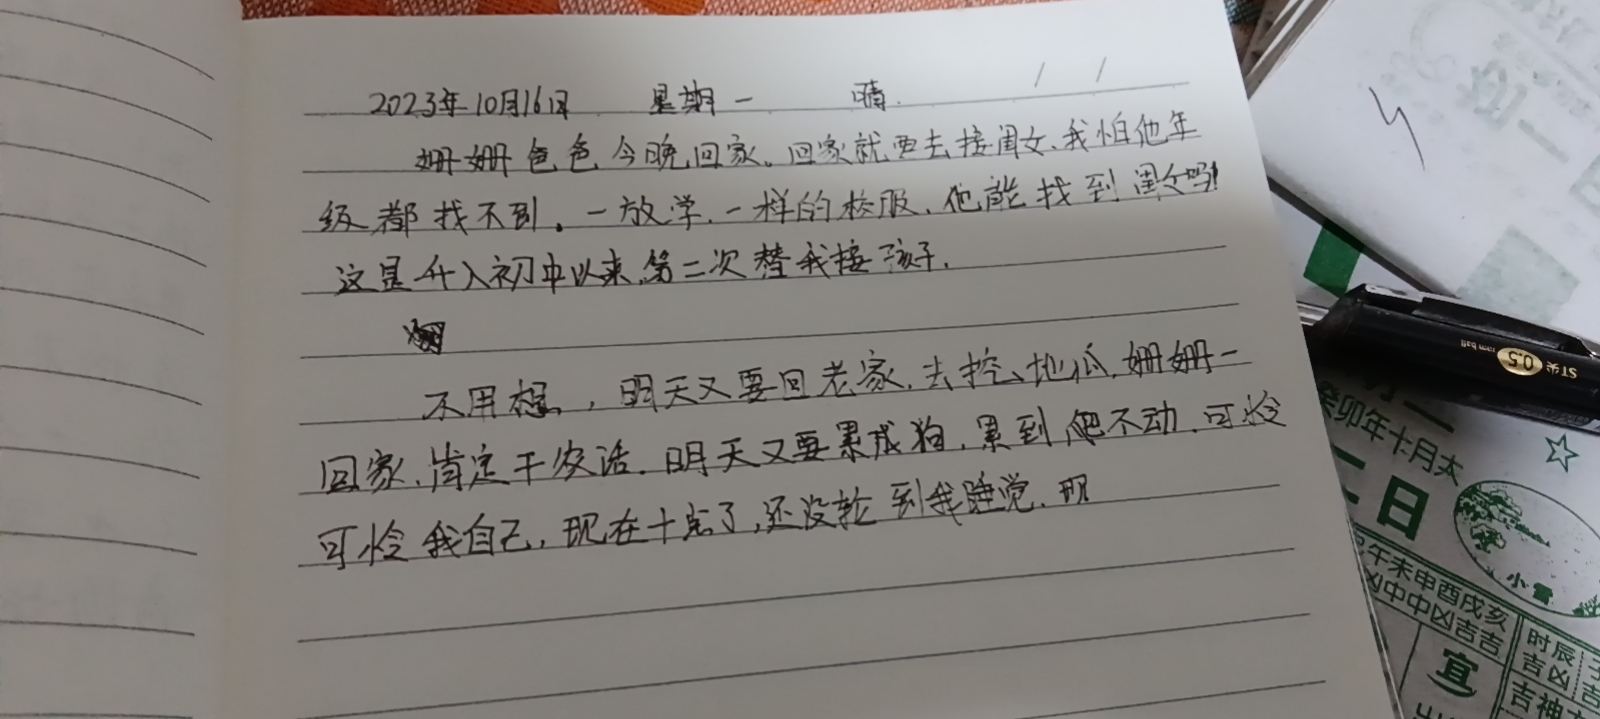 2023年10月16日 星期一 晴.
姗姗爸爸今晚回家。回家就要去接闺女.我怕他年
级都找不到。一放学.一样的校服.他能找到闺女吗!
这是升入初中以来第二次替我接孩子.
不用想,明天又要回老家.去挖地瓜.姗姗一
回家.肯定干农活.明天又要累成狗.累到爬不动.可怜
可怜我自己,现在十点了,还没轮到我睡觉.现
ST尖 0.5 mm ball
癸卯年十月大
二日
小雪
午未申酉戌亥
凶中中凶吉吉
时辰
吉凶
宜
吉神